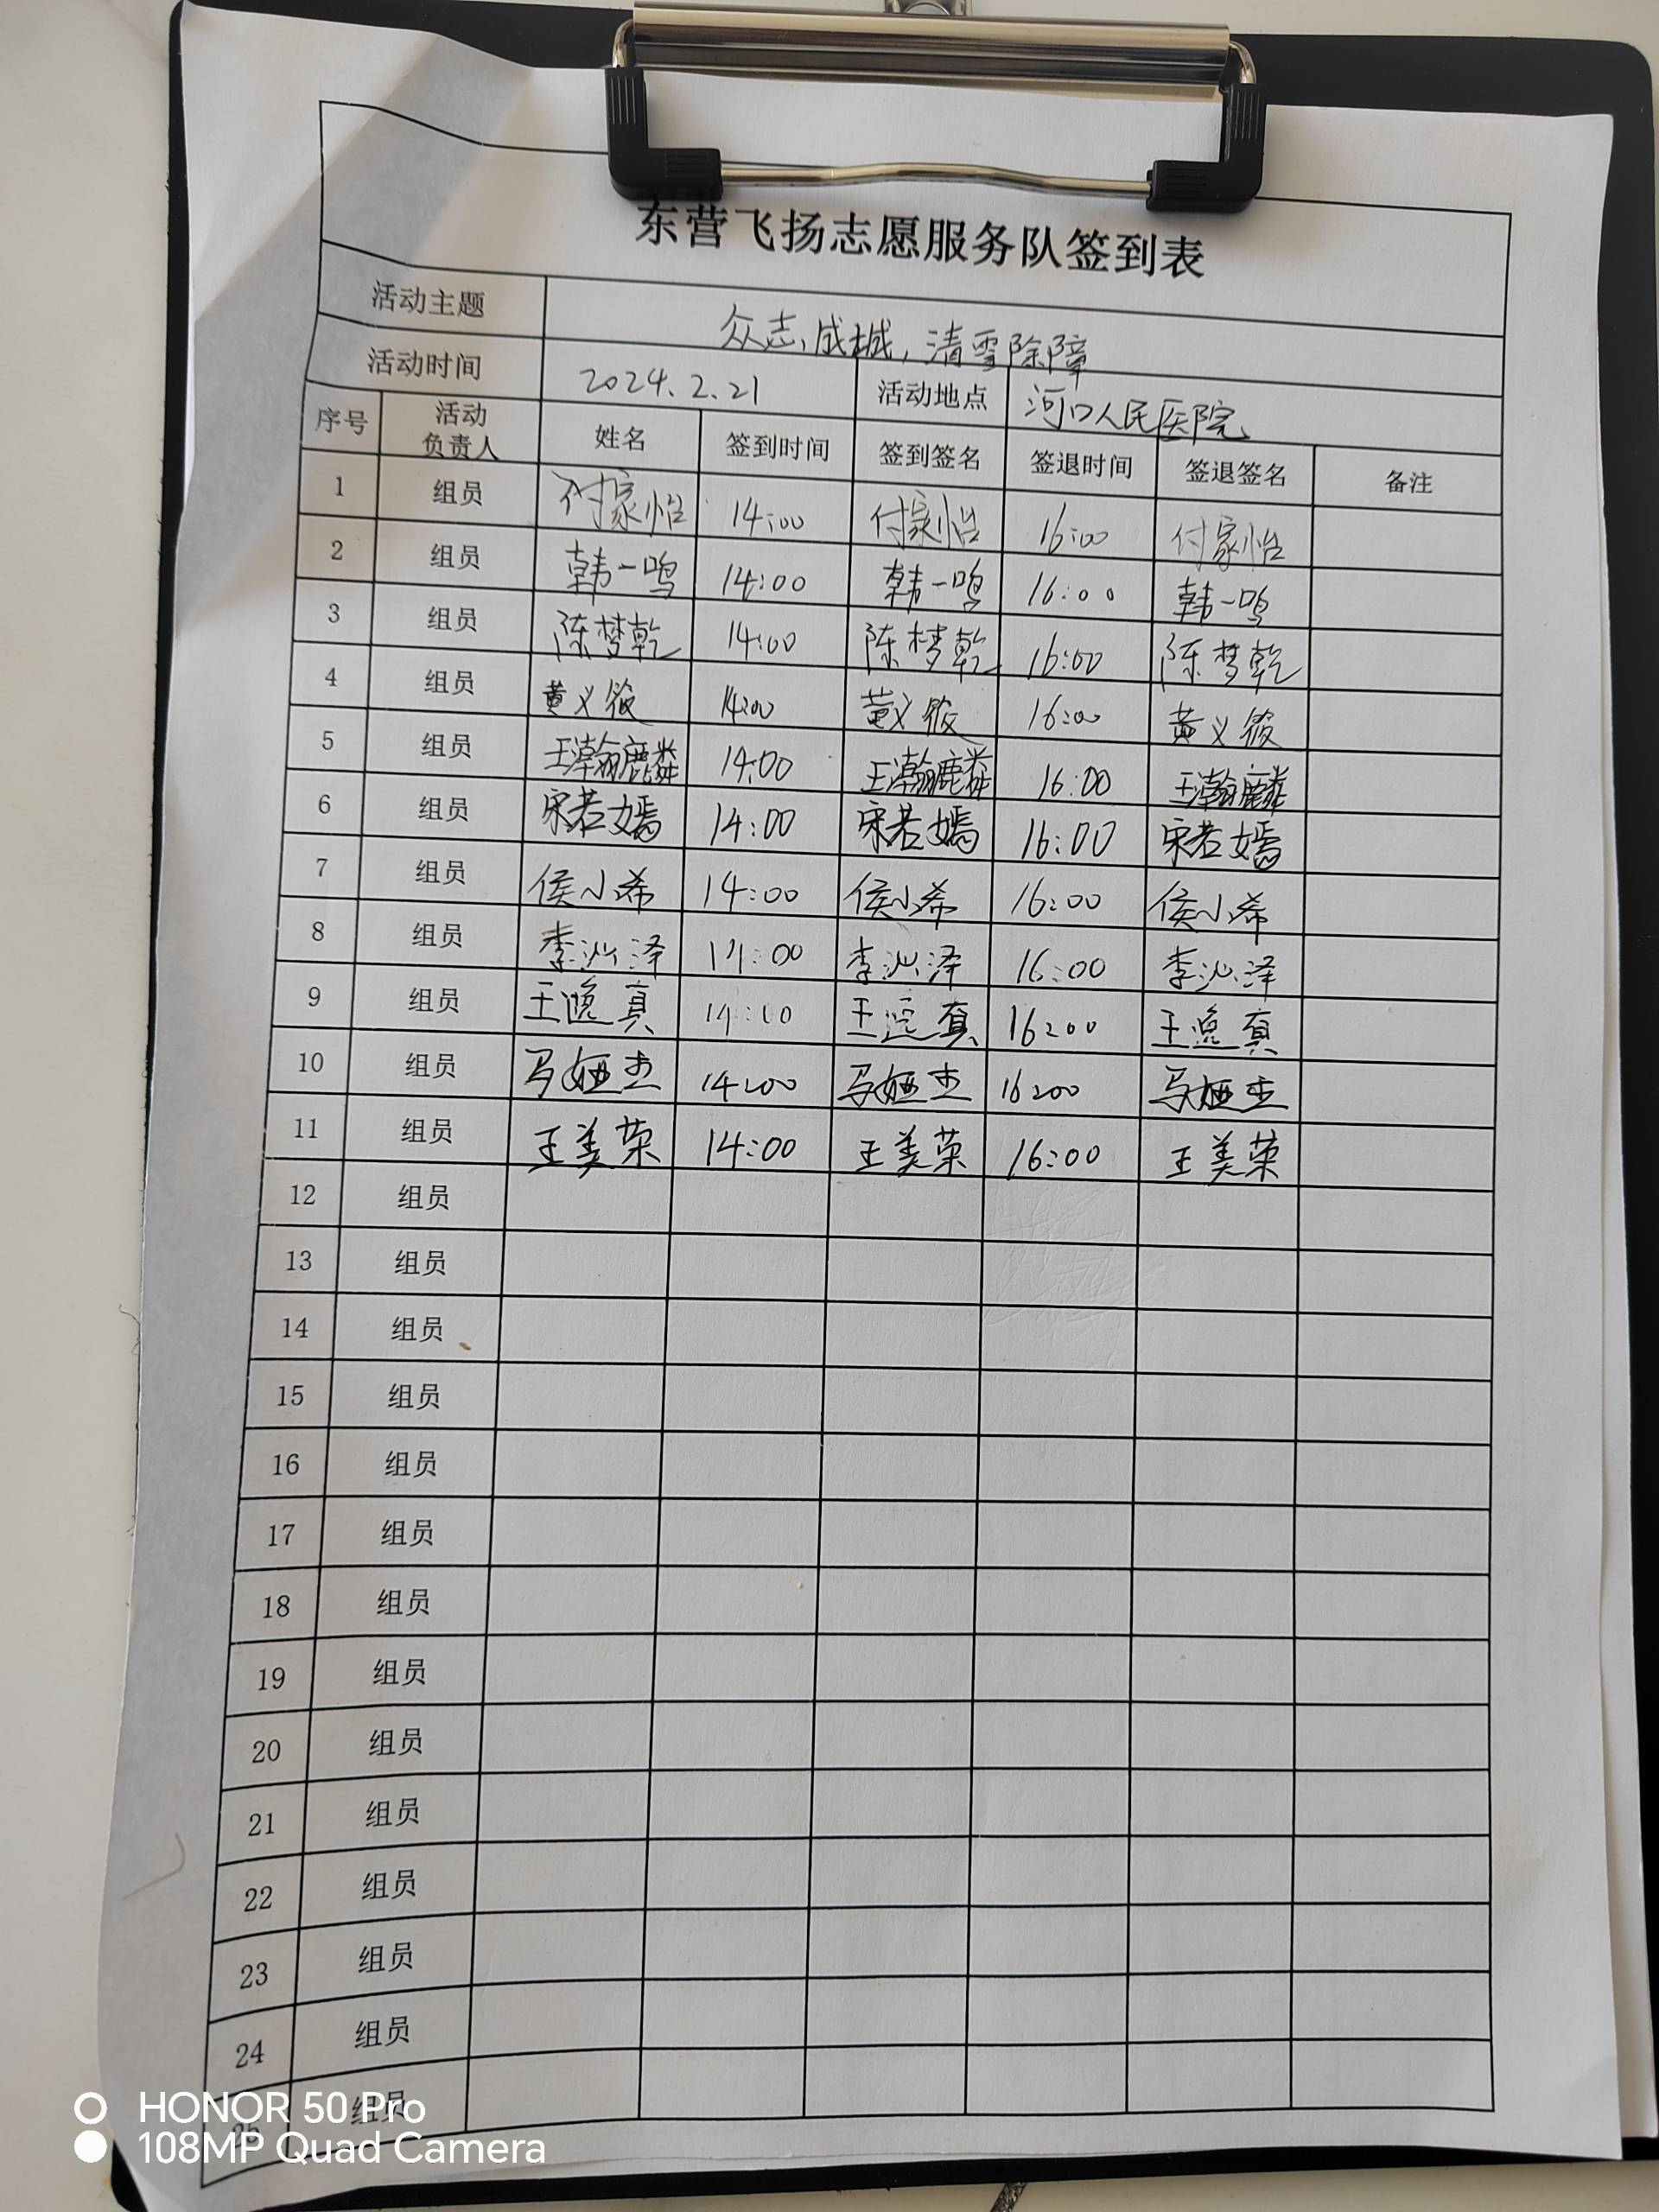 东营飞扬志愿服务队签到表
活动主题 众志成城，清雪除障
活动时间 2024.2.21 活动地点 河口人民医院
序号 活动负责人 姓名 签到时间 签到签名 签退时间 签退签名 备注
1 组员 付家怡 14:00 付家怡 16:00 付家怡
2 组员 韩一鸣 14:00 韩一鸣 16:00 韩一鸣
3 组员 陈梦乾 14:00 陈梦乾 16:00 陈梦乾
4 组员 黄义筱 14:00 黄义筱 16:00 黄义筱
5 组员 王瀚麟 14:00 王瀚麟 16:00 王瀚麟
6 组员 宋若嫣 14:00 宋若嫣 16:00 宋若嫣
7 组员 侯小希 14:00 侯小希 16:00 侯小希
8 组员 李沁泽 14:00 李沁泽 16:00 李沁泽
9 组员 王逸真 14:00 王逸真 16:00 王逸真
10 组员 马娅杰 14:00 马娅杰 16:00 马娅杰
11 组员 王美荣 14:00 王美荣 16:00 王美荣
12 组员
13 组员
14 组员
15 组员
16 组员
17 组员
18 组员
19 组员
20 组员
21 组员
22 组员
23 组员
24 组员
25 组员
HONOR 50 Pro
108MP Quad Camera